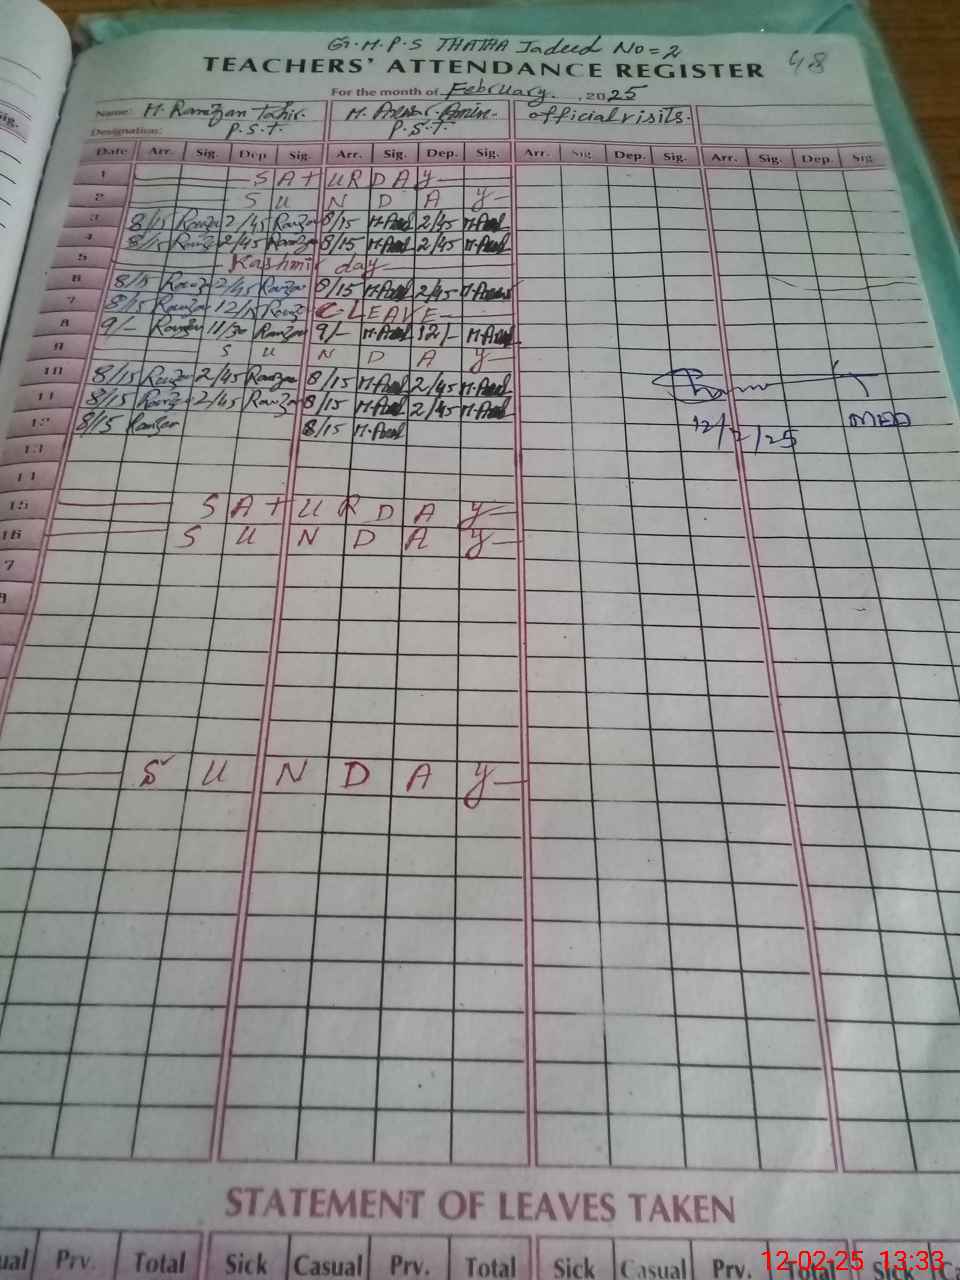 G.M.P.S THATHA Jadeed No=2
48
TEACHERS' ATTENDANCE REGISTER
For the month of February. , 2025
Name: M. Ramzan Tahir. M. Anwar Amin. official visits.
Designation: P.S.T. P.S.T.
Date Arr. Sig. Dep. Sig. Arr. Sig. Dep. Sig. Arr. Sig. Dep. Sig. Arr. Sig. Dep. Sig.
1 SATURDAY
2 SUNDAY
3 8/15 Ramzan 2/45 Ramzan 8/15 2/45
4 8/15 Ramzan 2/45 Ramzan 8/15 2/45
5 Kashmir day
6 8/15 Ramzan 2/45 Ramzan 8/15 2/45
7 8/15 Ramzan Ramzan C-LEAVE
8 9/- Ramzan 11/30 Ramzan 9/- 12/-
9 SUNDAY
10 8/15 Ramzan 2/45 Ramzan 8/15 2/45
11 8/15 Ramzan 2/45 Ramzan 8/15 2/45
12 8/15 Ramzan 8/15 12/2/25
13
14
15 SATURDAY
16 SUNDAY
7
SUNDAY
STATEMENT OF LEAVES TAKEN
ual Prv. Total Sick Casual Prv. Total Sick Casual Prv. Total Sick
12-02-25 13:33